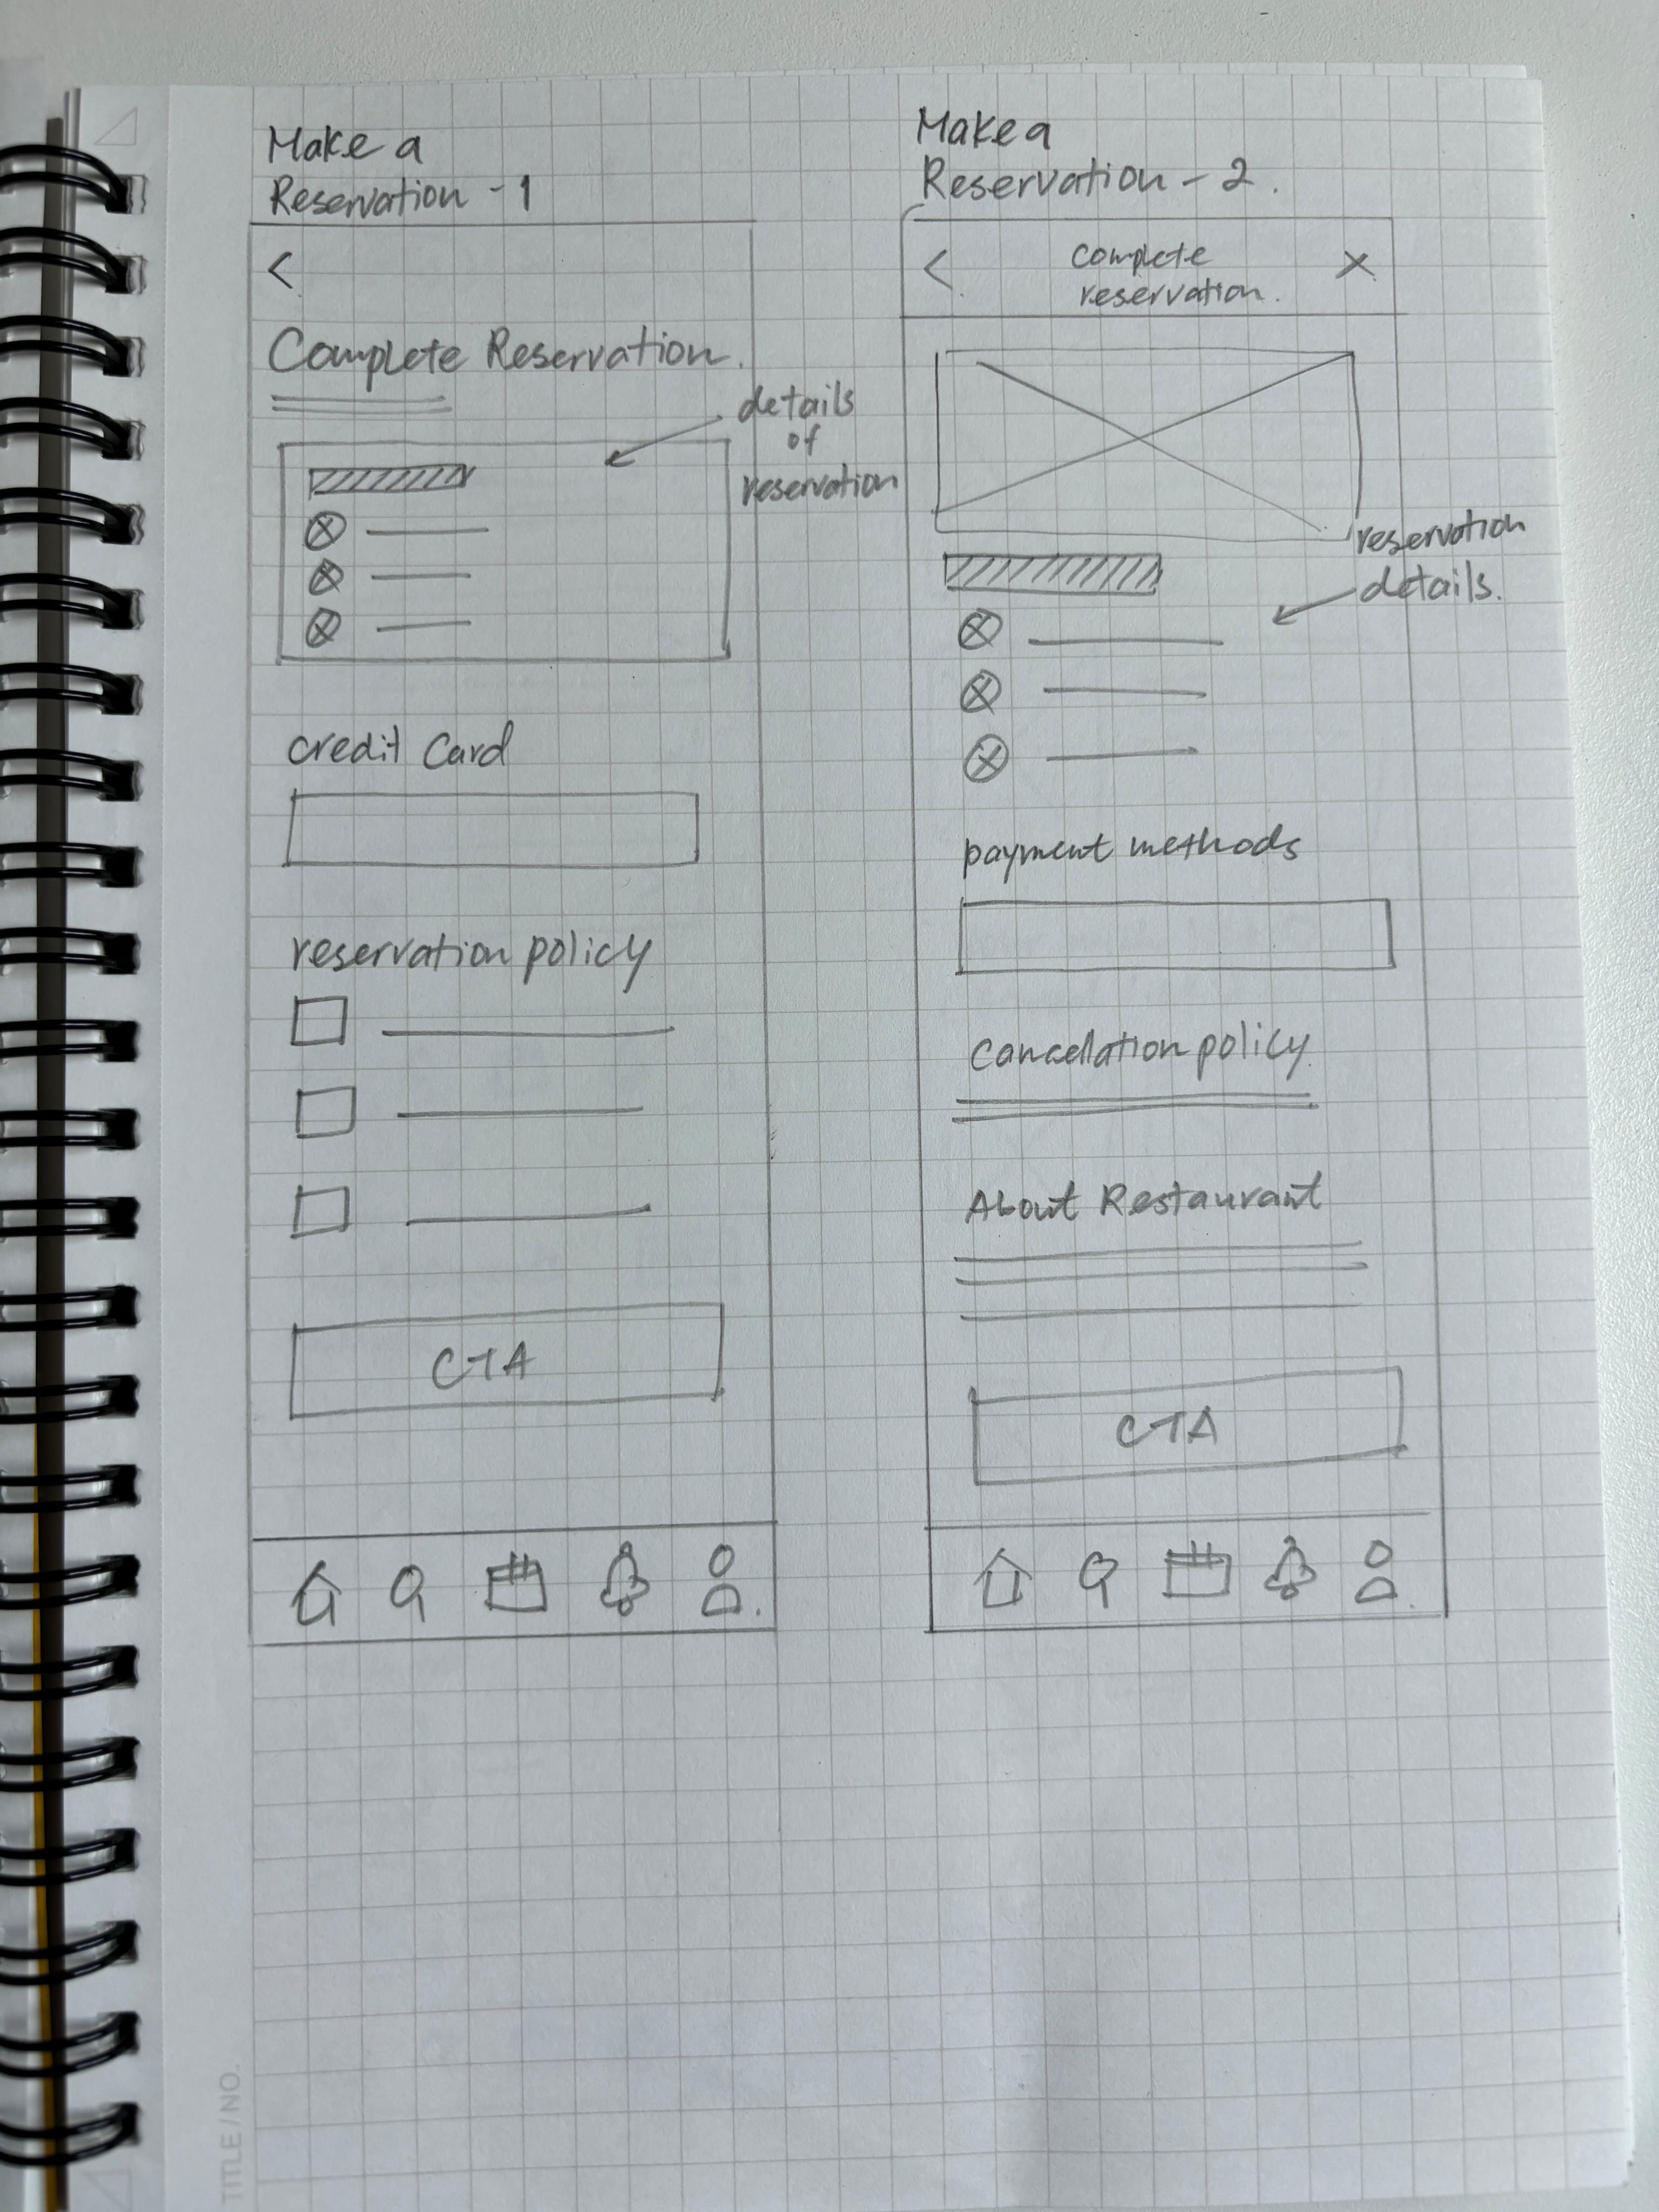 Make a
Reservation - 1
<
Complete Reservation.
details
of
reservation
credit Card
reservation policy
CTA
Make a
Reservation - 2.
<
complete
reservation.
X
reservation
details.
payment methods
Cancellation policy.
About Restaurant
CTA
TITLE / NO.